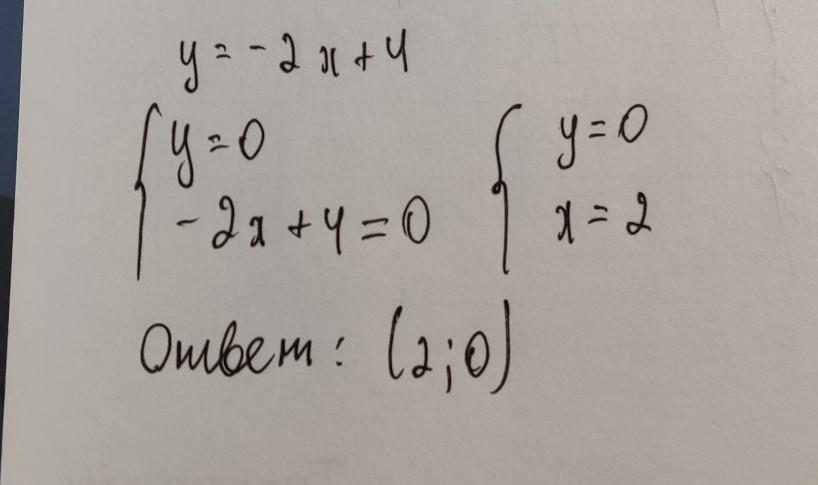 y = -2x + 4
{ y = 0 { y = 0
-2x + 4 = 0 x = 2
Ответ: (2; 0)